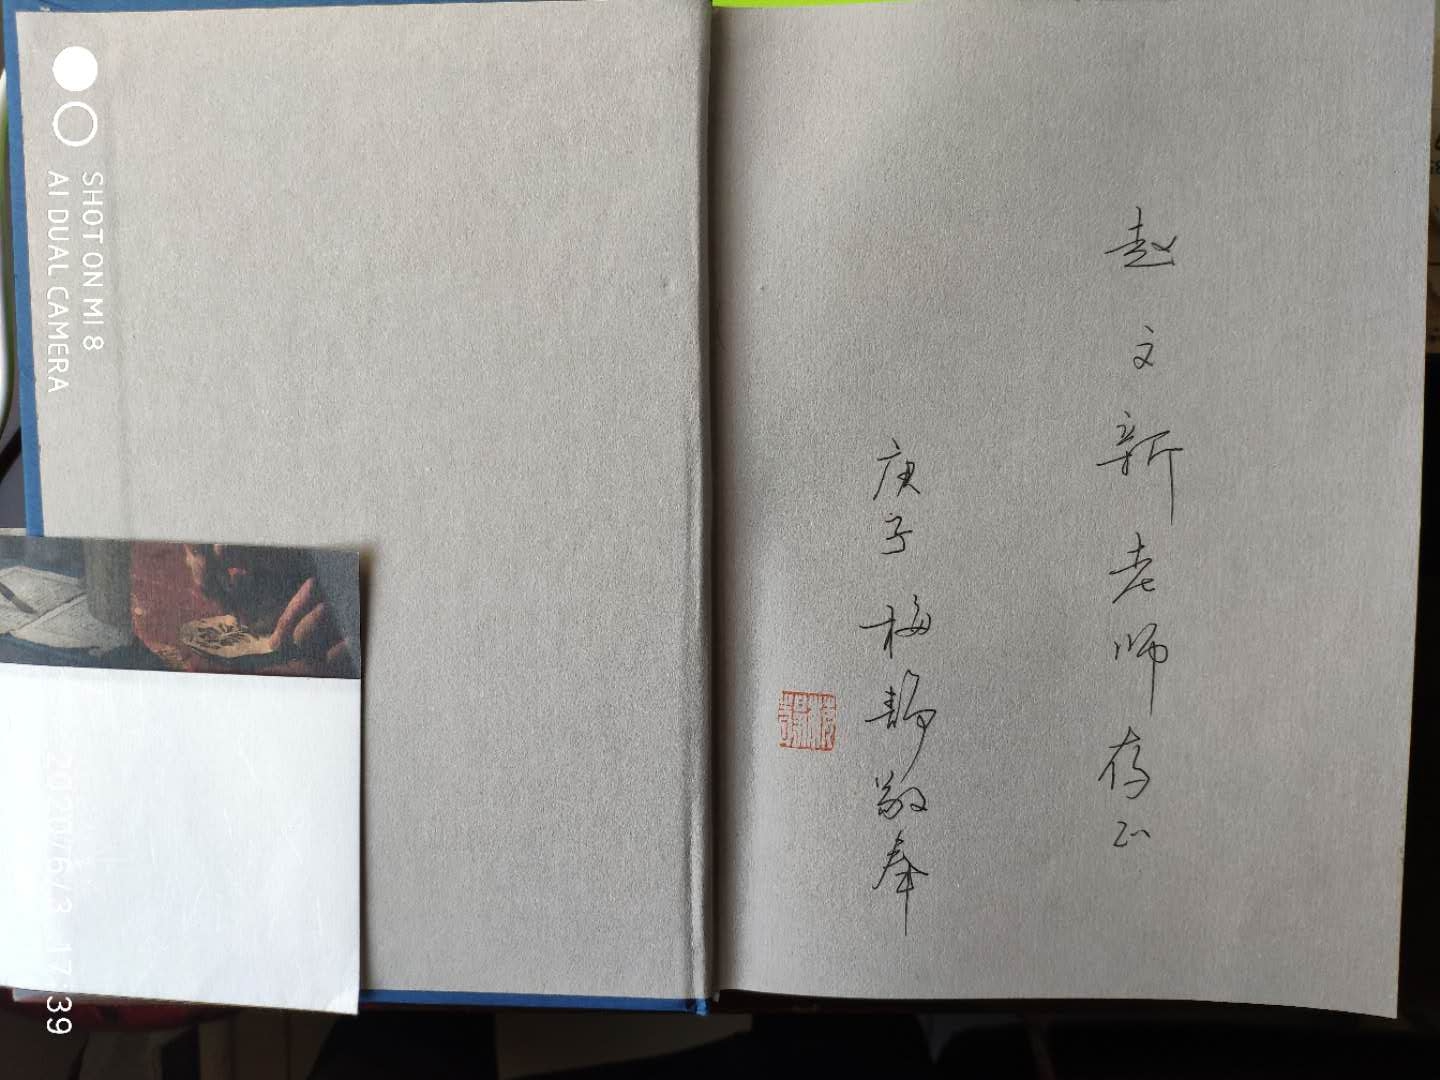 赵文新老师存正
庚子 梅静敬奉
SHOT ON MI 8
AI DUAL CAMERA
2020/6/3 17:39